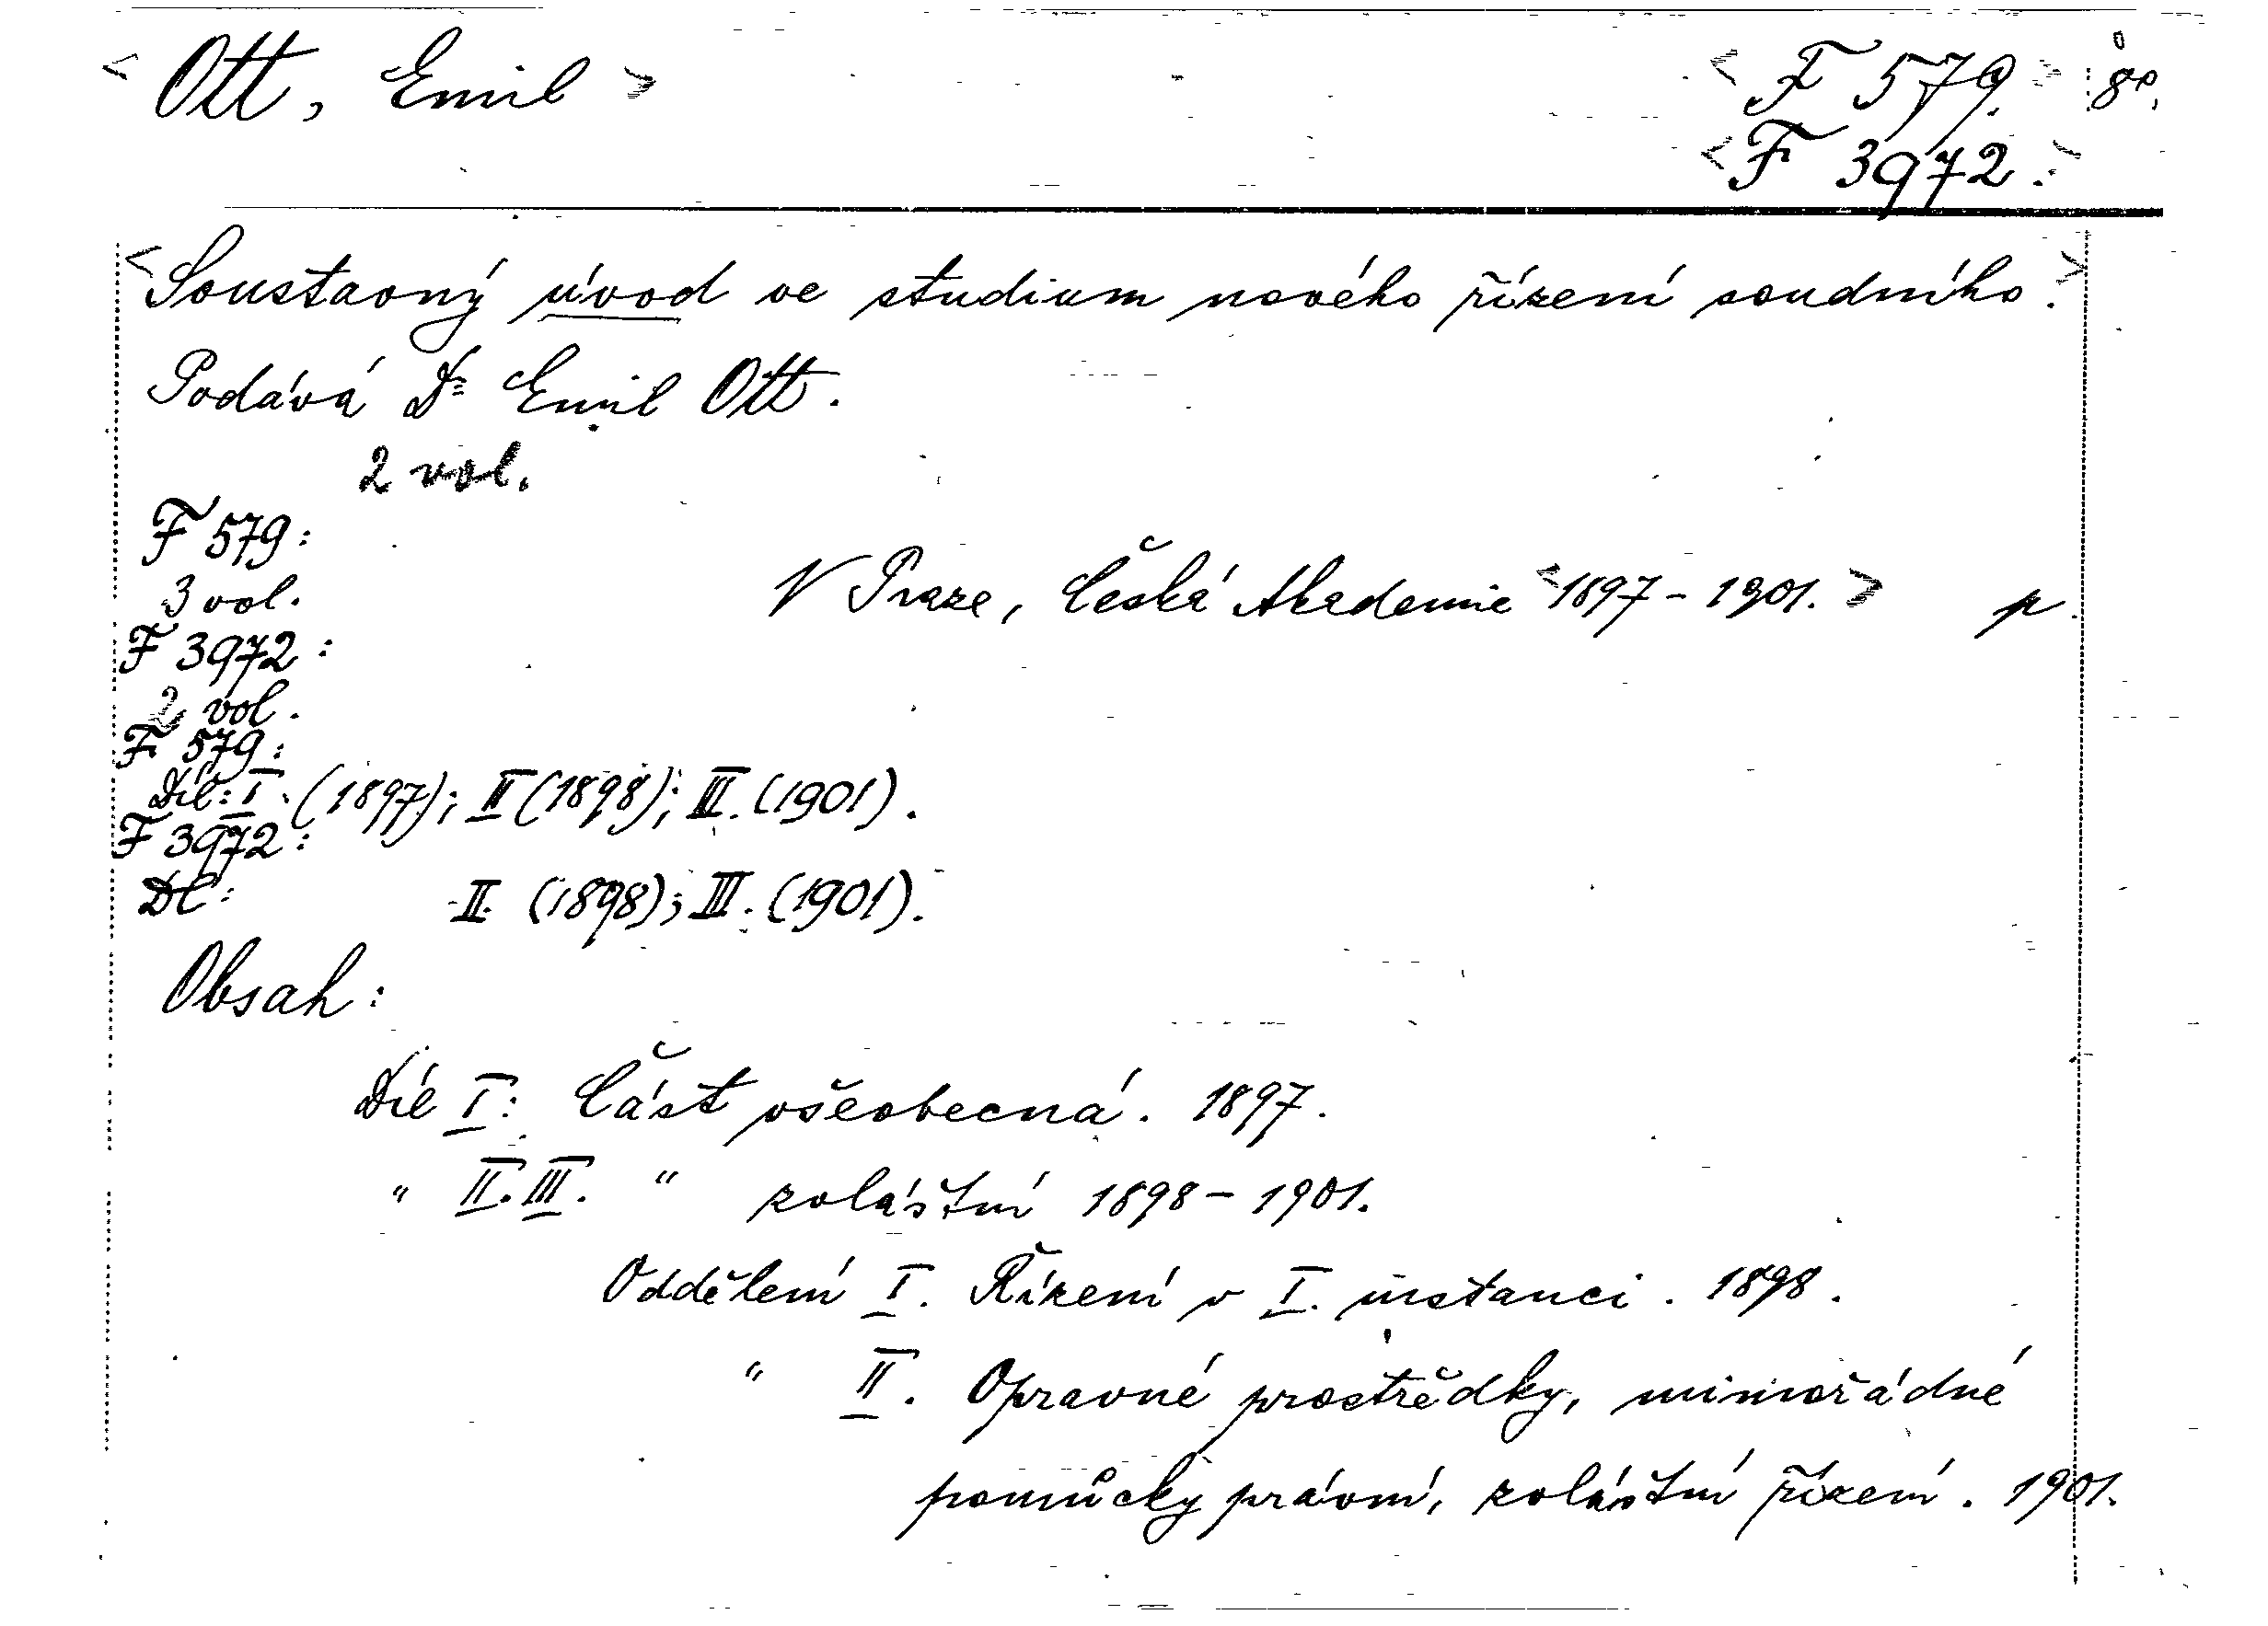 <Ott, Emil> <F 579.> 8°.
<F 3972.>
<Soustavný úvod ve studium nového řízení soudního.>
Podává Dr Emil Ott.
2 vol.
F 579:
3 vol.
V Praze, Česká Akademie <1897-1901.> p.
F 3972:
2 vol.
F 579:
Díl: I. (1897); II (1898); III. (1901).
F 3972:
Díl: II. (1898); III. (1901).
Obsah:
Díl I: Část všeobecná. 1897.
" II. III. " zvláštní 1898-1901.
Oddělení I. Řízení v I. instanci. 1898.
" II. Opravné prostředky, mimořádné
pomůcky právní, zvláštní řízení. 1901.